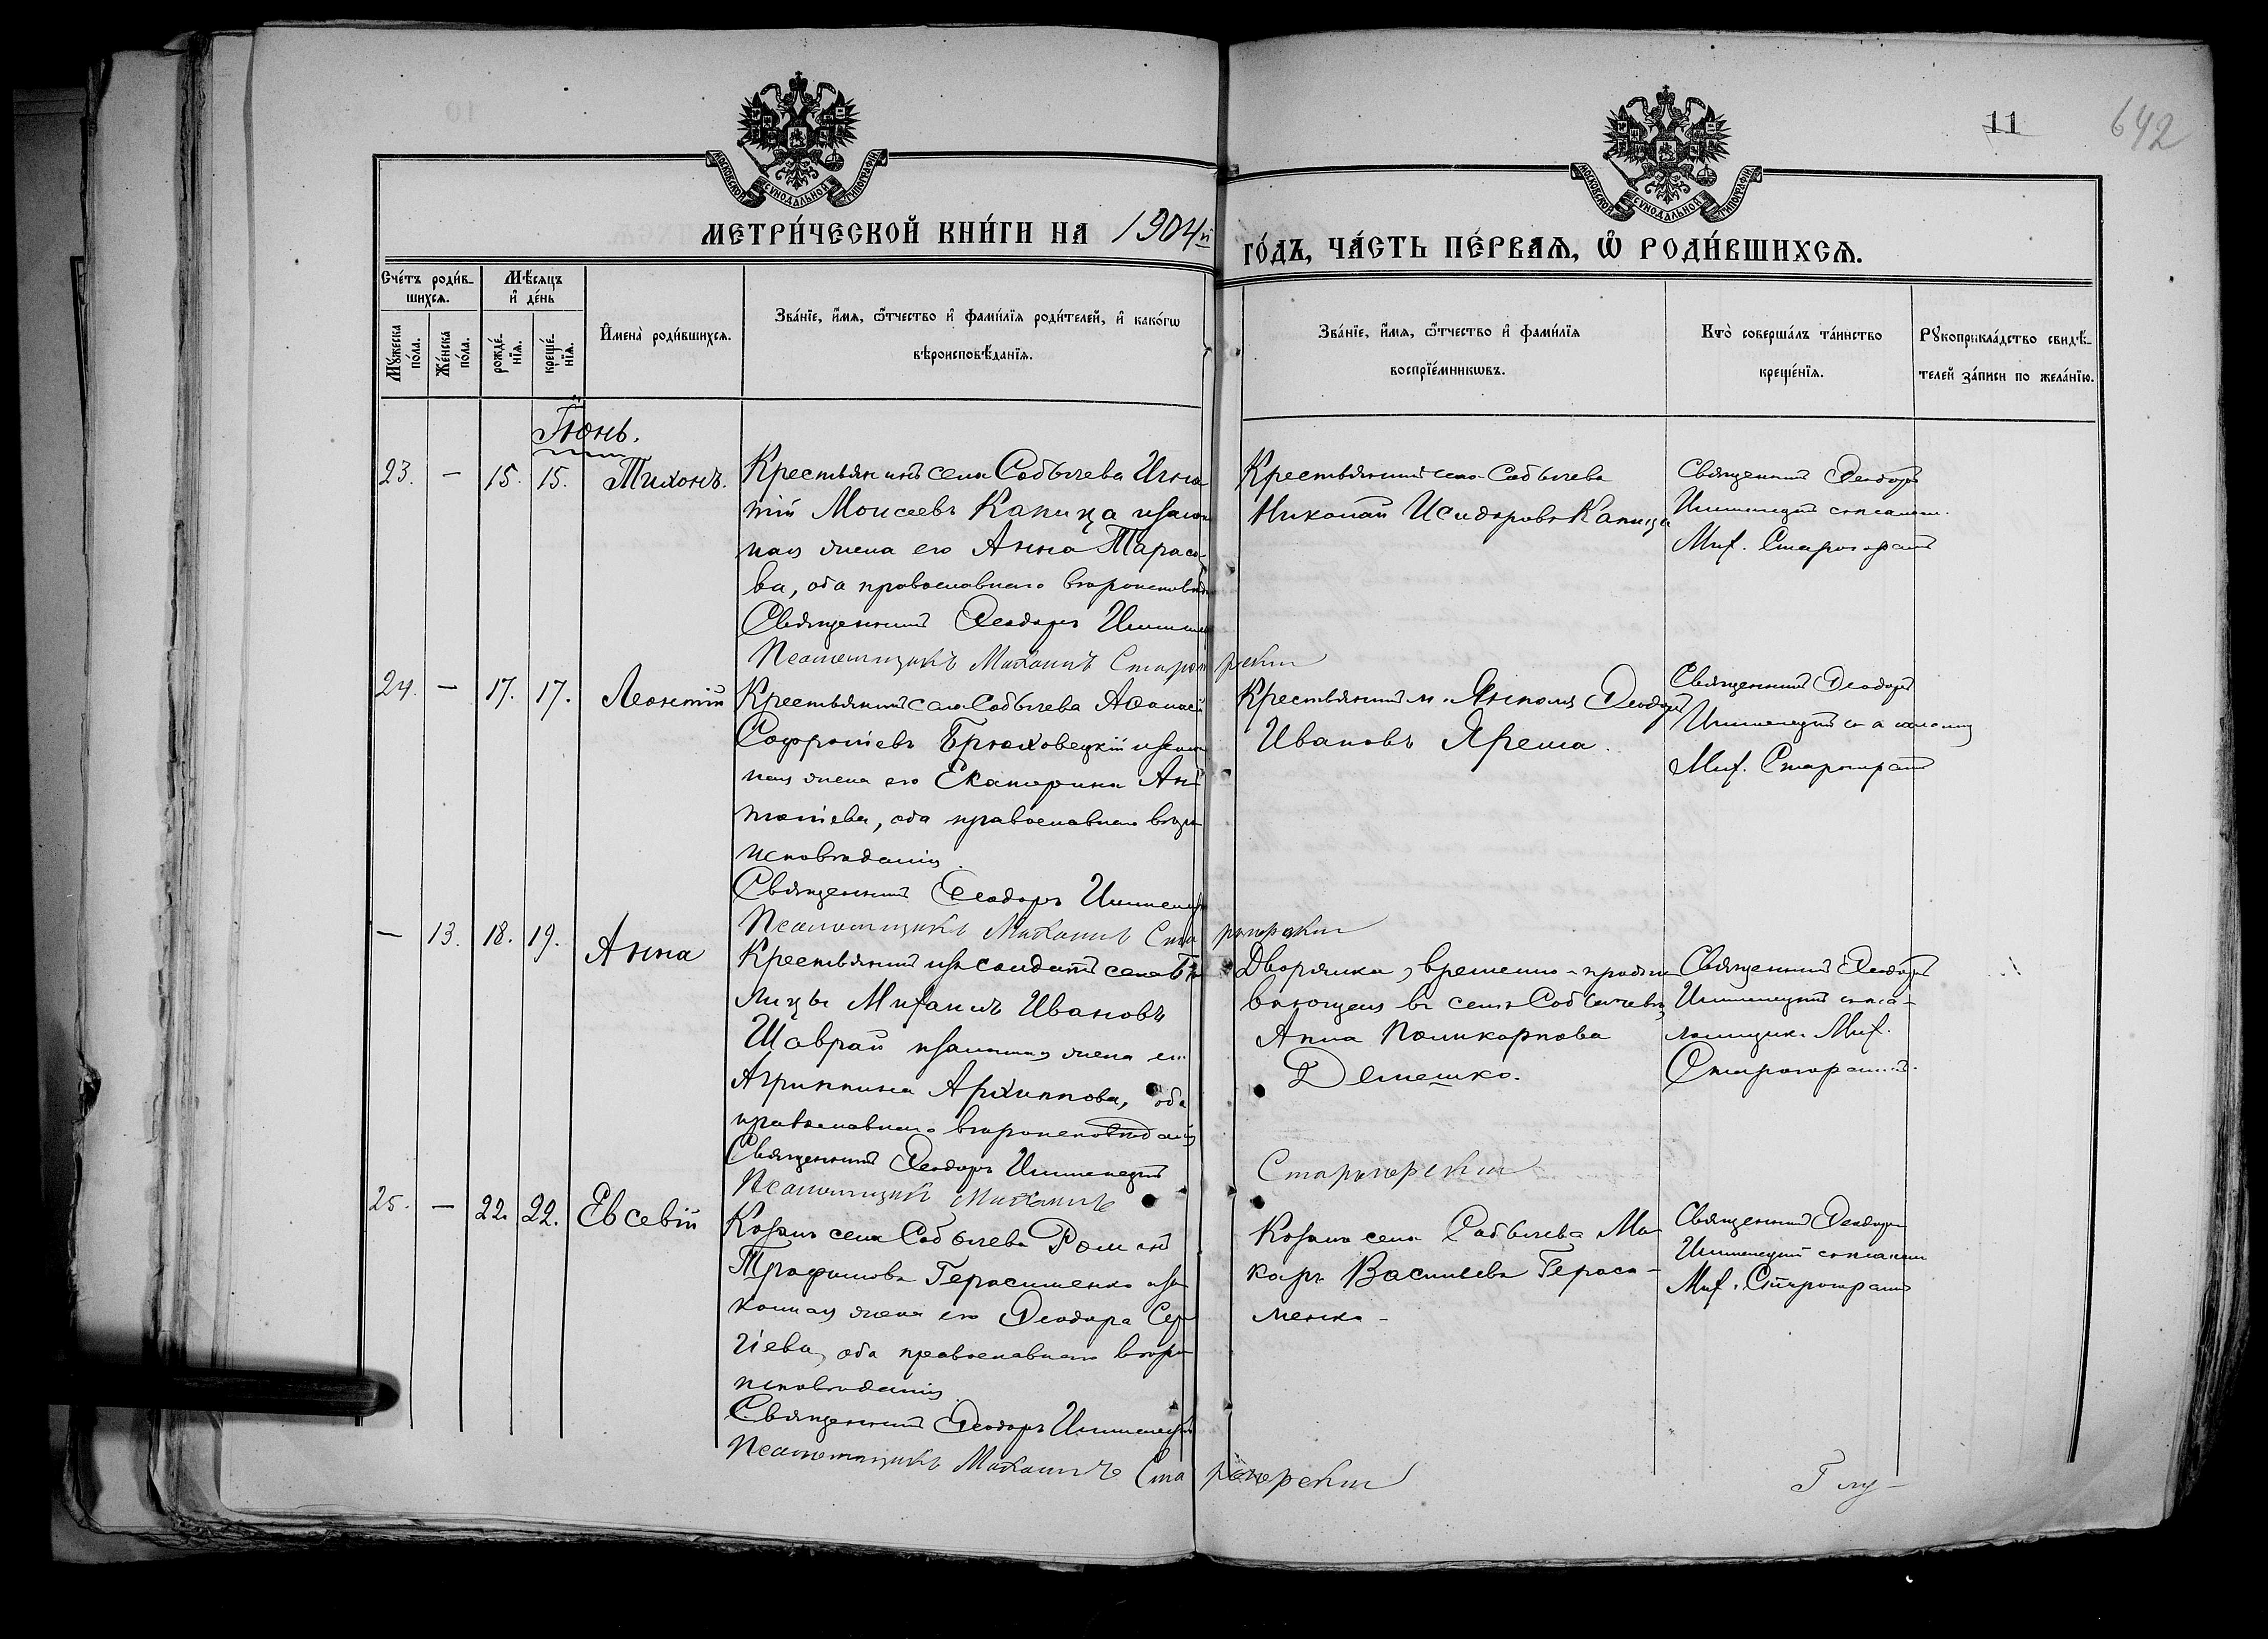 11
642
МОСКОВСКОЙ СУНОДАЛЬНОЙ ТИПОГРАФІИ
МОСКОВСКОЙ СУНОДАЛЬНОЙ ТИПОГРАФІИ
МЕТРИ́ЧЕСКОЙ КНИ́ГИ НА 1904й
ГО́ДЪ, ЧА́СТЬ ПЕ́РВАѦ, Ѽ РОДИ́ВШИХСѦ.
Сче́тъ роди́в-
шихсѧ.
Мꙋ́жеска
по́ла.
Же́нска
по́ла.
Мѣ́сѧцъ
и҆ де́нь
рожде́-
нїѧ.
креще́-
нїѧ.
И҆мена̀ роди́вшихсѧ.
Зва́нїе, и҆́мѧ, ѻ҆́тчество и҆ фами́лїѧ роди́телей, и҆ како́гѡ
вѣроисповѣ́данїѧ.
Зва́нїе, и҆́мѧ, ѻ҆́тчество и҆ фами́лїѧ
воспрїе́мникѡвъ.
Кто̀ соверша́лъ та́инство
креще́нїѧ.
Рꙋкоприкла́дство свидѣ́-
телей за́писи по жела́нїю.
Іюнь.
23. — 15. 15. Тихонъ.
Крестьянинъ села Собычева Игна
тій Моисеевъ Капица и закон
ная жена его Анна Тарасо-
ва, оба православнаго вѣроисповѣд
Священникъ Ѳеодоръ
Псаломщикъ Михаилъ Старогорскій
Крестьянинъ села Собычева
Николай Исидоровъ Капица
Священникъ Ѳеодоръ
Мих.
24. — 17. 17. Леонтій
Крестьянинъ села Собычева Аѳанасій
Софроніевъ Брюховецкій и закон
ная жена его Екатерина Ан
тоніева, оба православнаго вѣро
исповѣданія.
Священникъ Ѳеодоръ
Псаломщикъ Михаилъ Старогорскій
Крестьянинъ м. Янполя Ѳеодоръ
Ивановъ Ярема.
Священникъ Ѳеодоръ
Мих.
— 13. 18. 19. Анна
Крестьянинъ изъ солдатъ села
лицы Михаилъ Ивановъ
Шаврай и законная жена его
Агриппина Архиппова, оба
православнаго вѣроисповѣданія
Священникъ Ѳеодоръ
Псаломщикъ Михаилъ Старогорскій
Дворянка, временно-прожи
вающая въ селѣ Собычевѣ
Анна Поликарпова
Демешко.
Священникъ Ѳеодоръ
съ пса-
ломщик. Мих.
25. — 22. 22. Евсевій
Козакъ села Собычева Романъ
Трофимовъ Герасименко и за
конная жена его Ѳеодора Сер
гіева, оба православнаго вѣро
исповѣданія.
Священникъ Ѳеодоръ
Псаломщикъ Михаилъ Старогорскій
Козакъ села Собычева Ма-
каръ Васильевъ Гераси-
менко-
Священникъ Ѳеодоръ
Мих.
Глу-